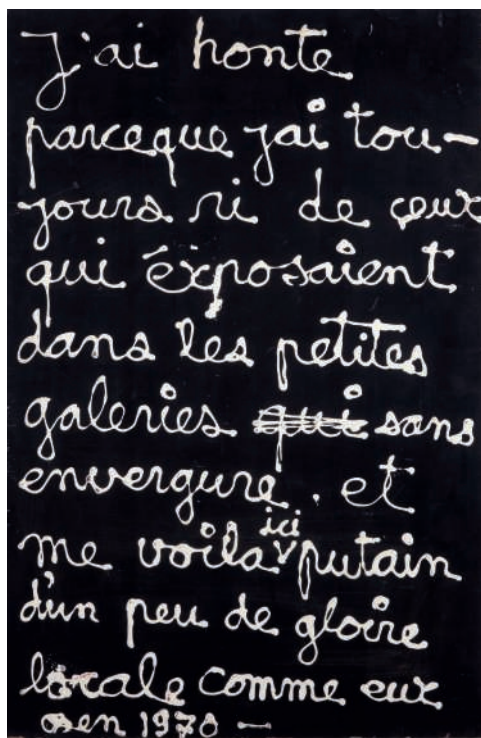 J'ai honte
parceque jai tou-
jours ri de ceux
qui éxposaient
dans les petites
galeries qui sans
envergure. et
me voila ici putain
d'un peu de gloire
locale comme eux
Ben 1970 —